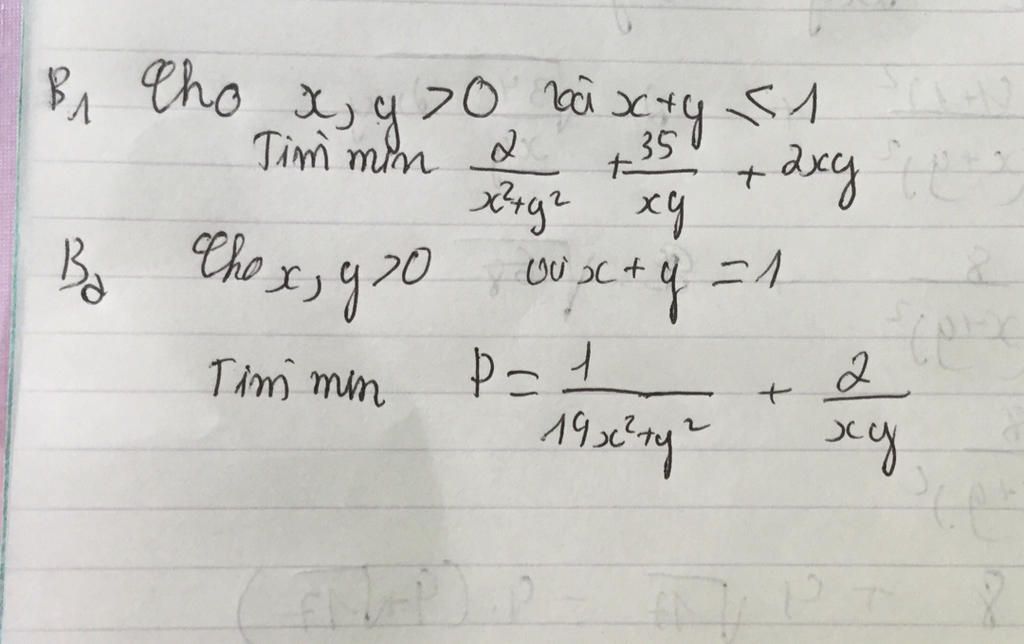 B1 Cho x, y > 0 với x+y ≤ 1
Tìm min 2/(x²+y²) + 35/(xy) + 2xy
B2 Cho x, y > 0 với x + y = 1
Tìm min P = 1/(19x²+y²) + 2/(xy)